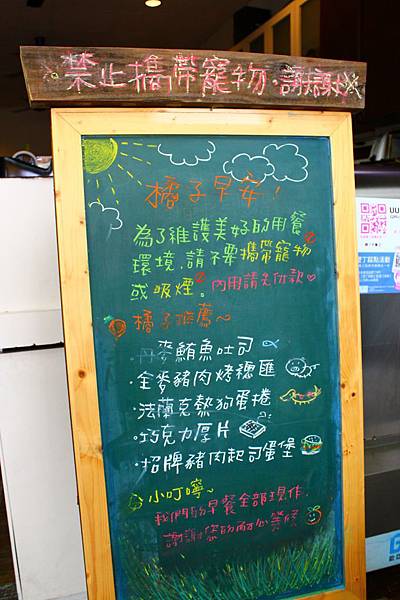 禁止攜帶寵物．謝謝
橘子早安！
為了維護美好的用餐
環境，請不要攜帶寵物
或吸煙。內用請先付款
橘子推薦～
丹麥鮪魚吐司
·全麥豬肉烤穗匯
·法蘭克熱狗蛋捲
·巧克力厚片
·招牌豬肉起司蛋堡
小叮嚀～
我們的早餐全部現作，
謝謝您的耐心等候
UU